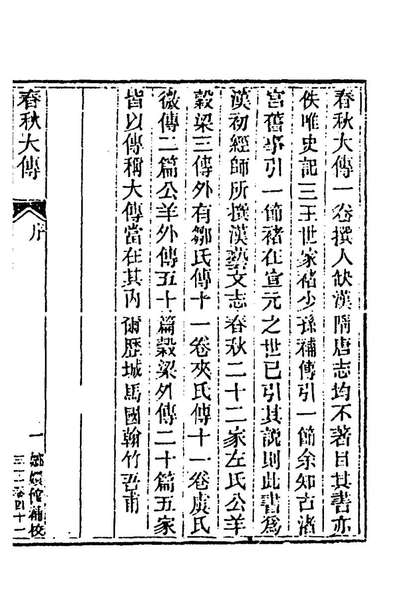 春秋大傳一卷撰人缺漢隋唐志均不著目其書亦
佚唯史記三王世家褚少孫補傳引一節余知古渚
宮舊事引一節褚在宣元之世已引其說則此書爲
漢初經師所撰漢藝文志春秋二十二家左氏公羊
穀梁三傳外有鄒氏傳十一卷夾氏傳十一卷虞氏
微傳二篇公羊外傳五十篇穀梁外傳二十篇五家
皆以傳稱大傳當在其內爾歷城馬國翰竹吾甫
春秋大傳
序
一
嫏嬛館補校